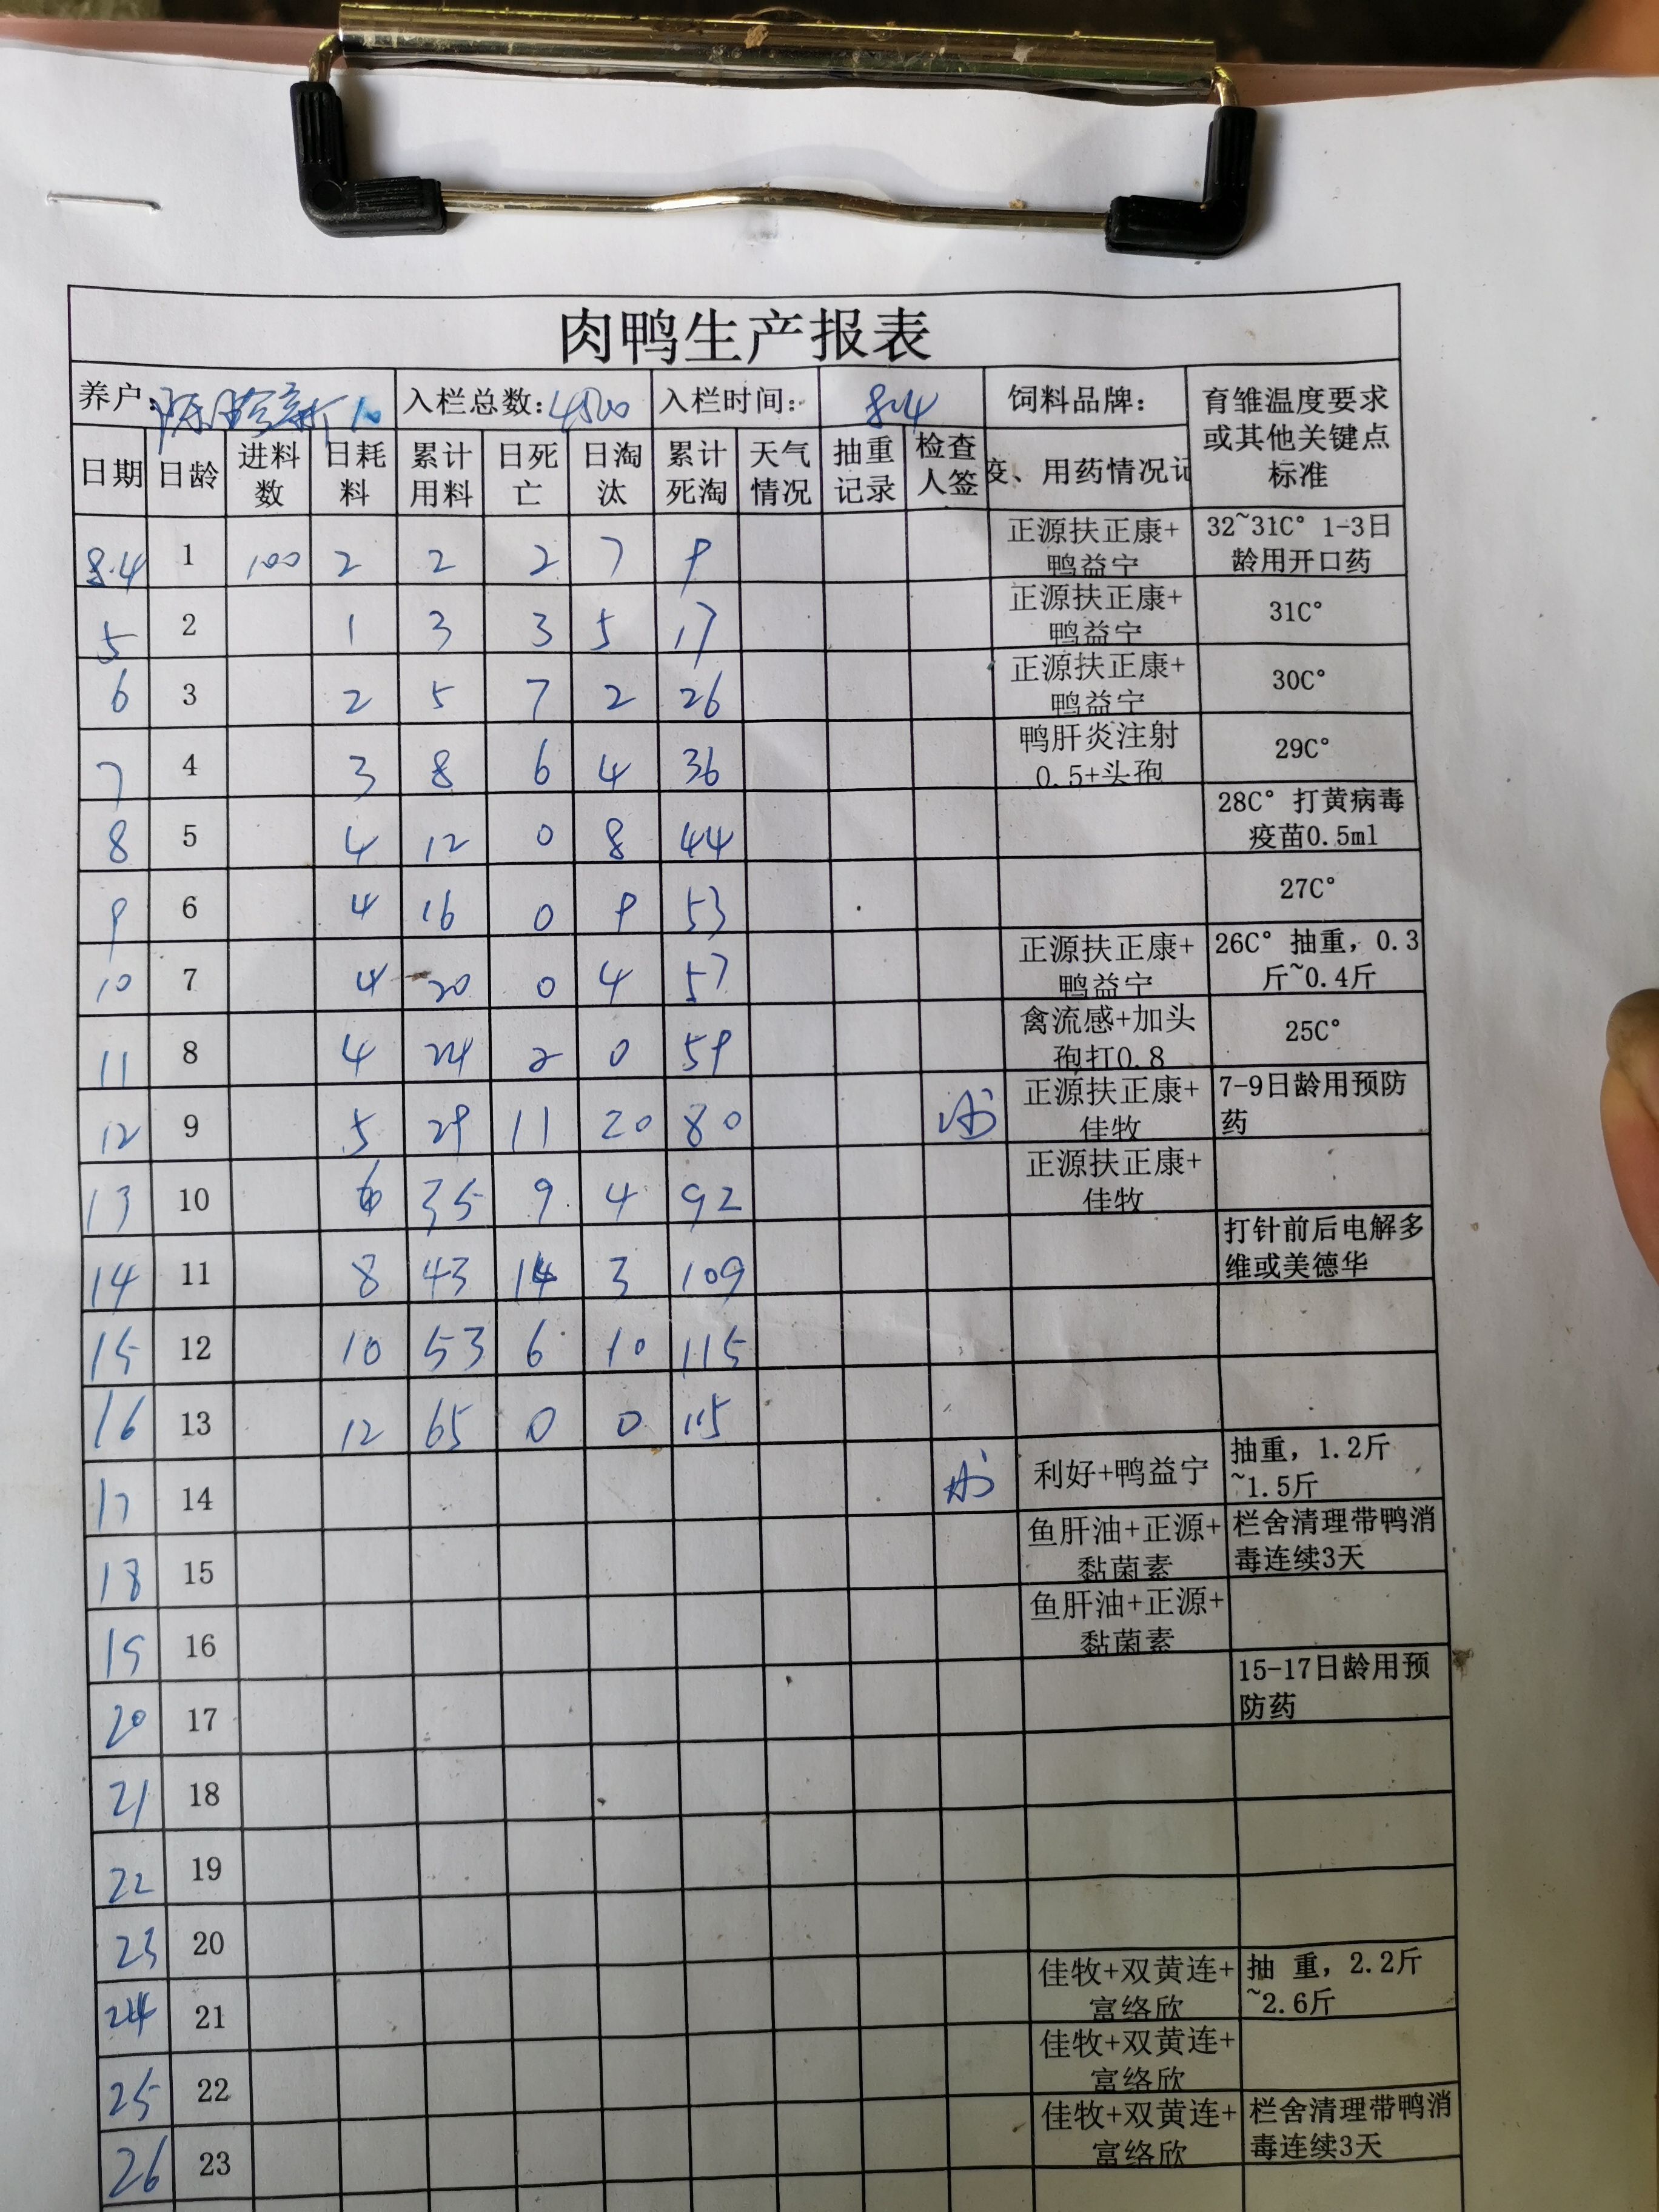 肉鸭生产报表
养户: 入栏总数: 4500 入栏时间: 8.4 饲料品牌: 育雏温度要求或其他关键点标准
日期 日龄 进料数 日耗料 累计用料 日死亡 日淘汰 累计死淘 天气情况 抽重记录 检查人签 疫、用药情况记
8.4 1 100 2 2 2 7 9 正源扶正康+鸭益宁 32~31C° 1-3日龄用开口药
5 2 1 3 3 5 17 正源扶正康+鸭益宁 31C°
6 3 2 5 7 2 26 正源扶正康+鸭益宁 30C°
7 4 3 8 6 4 36 鸭肝炎注射0.5+头孢 29C°
8 5 4 12 0 8 44 28C° 打黄病毒疫苗0.5ml
9 6 4 16 0 9 53 27C°
10 7 4 20 0 4 57 正源扶正康+鸭益宁 26C° 抽重，0.3斤~0.4斤
11 8 4 24 2 0 59 禽流感+加头孢打0.8 25C°
12 9 5 29 11 20 80 正源扶正康+佳牧 7-9日龄用预防药
13 10 6 35 9 4 92 正源扶正康+佳牧
14 11 8 43 14 3 109 打针前后电解多维或美德华
15 12 10 53 6 10 115
16 13 12 65 0 0 115
17 14 利好+鸭益宁 抽重，1.2斤~1.5斤
18 15 鱼肝油+正源+黏菌素 栏舍清理带鸭消毒连续3天
19 16 鱼肝油+正源+黏菌素
20 17 15-17日龄用预防药
21 18
22 19
23 20
24 21 佳牧+双黄连+富络欣 抽 重，2.2斤~2.6斤
25 22 佳牧+双黄连+富络欣
26 23 佳牧+双黄连+富络欣 栏舍清理带鸭消毒连续3天